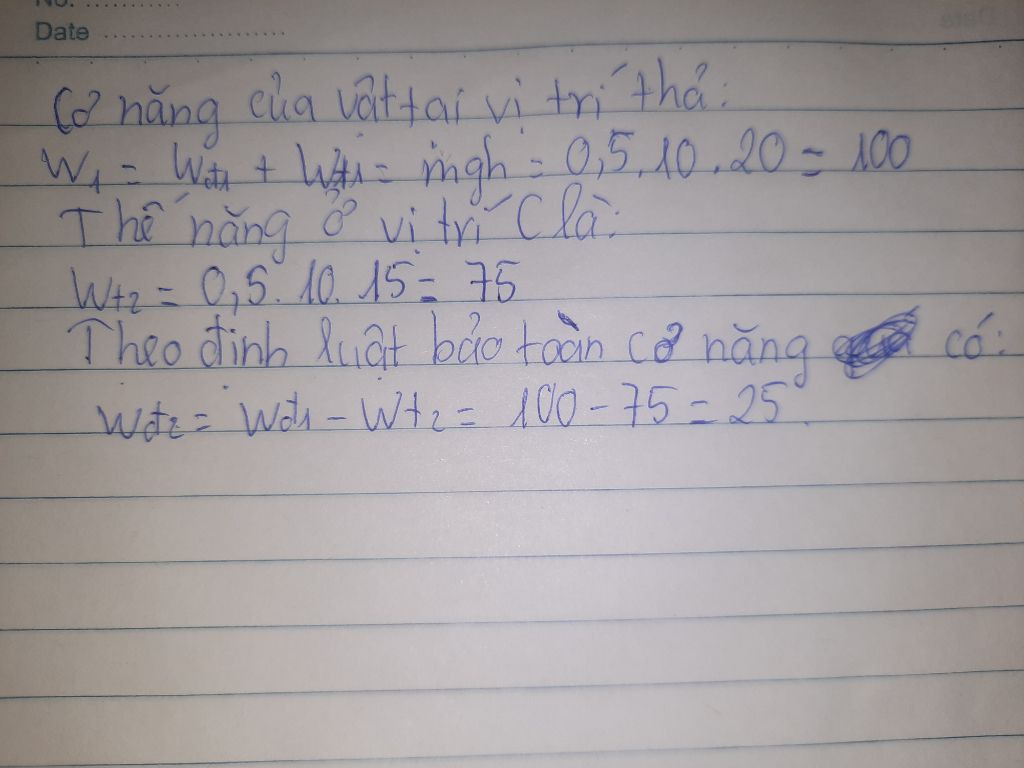 No. ............
Date .....................
Cơ năng của vật tại vị trí thả:
W1 = Wđ1 + Wt1 = mgh = 0,5.10.20 = 100
Thế năng ở vị trí C là:
Wt2 = 0,5.10.15 = 75
Theo định luật bảo toàn cơ năng có:
Wđ2 = Wđ1 - Wt2 = 100 - 75 = 25.